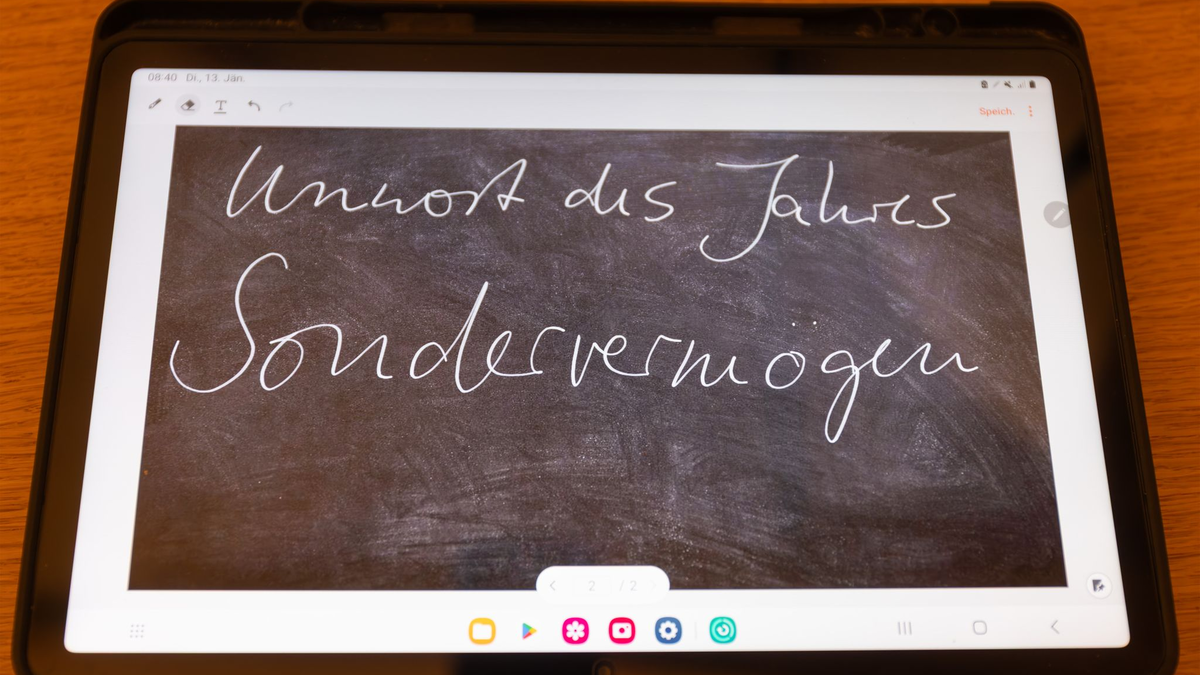 08:40 Di., 13. Jan.
T
Speich.
Unwort des Jahres
Sondervermögen
2 / 2